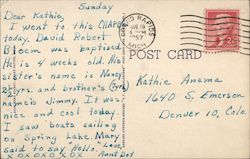 Sunday
Dear Kathie,
I went to this CHAPEL
today. David Robert
Bloem was baptised.
He is 4 weeks old. His
sister's name is Nancy
2½ yrs. and brother's Greg
name is Jimmy. It was
nice and cool today.
I saw boats sailing
on Spring Lake. Mary
said to say Hello. Love,
XOXOXOXOX Aunt Dot
GRAND RAPIDS
1957
MICH
POST CARD
Kathie Anema
1640 S. Emerson
Denver 10, Colo.